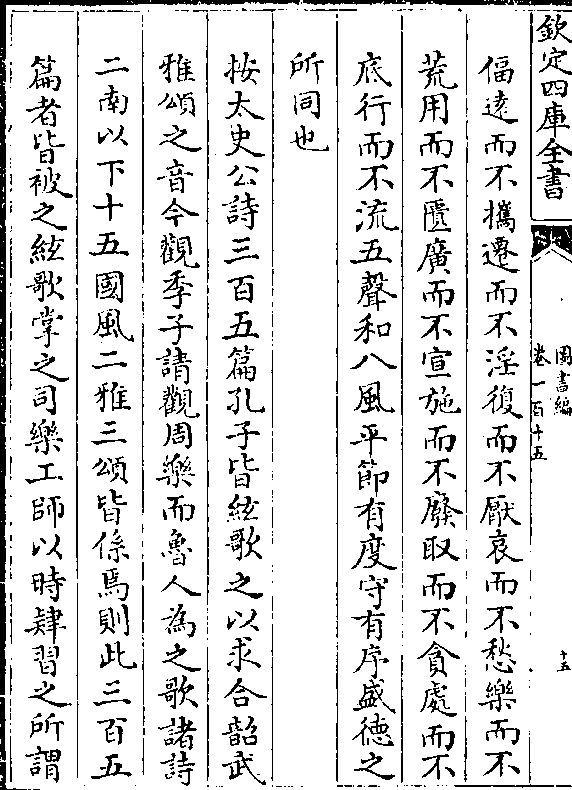 欽定四庫全書
圖書編
卷一百十五
十五
偪遠而不攜遷而不淫復而不厭哀而不愁樂而不
荒用而不匱廣而不宣施而不廢取而不貪處而不
底行而不流五聲和八風平節有度守有序盛德之
所同也
按太史公詩三百五篇孔子皆絃歌之以求合韶武
雅頌之音今觀季子請觀周樂而魯人為之歌諸詩
二南以下十五國風二雅三頌皆係焉則此三百五
篇者皆被之絃歌掌之司樂工師以時肄習之所謂